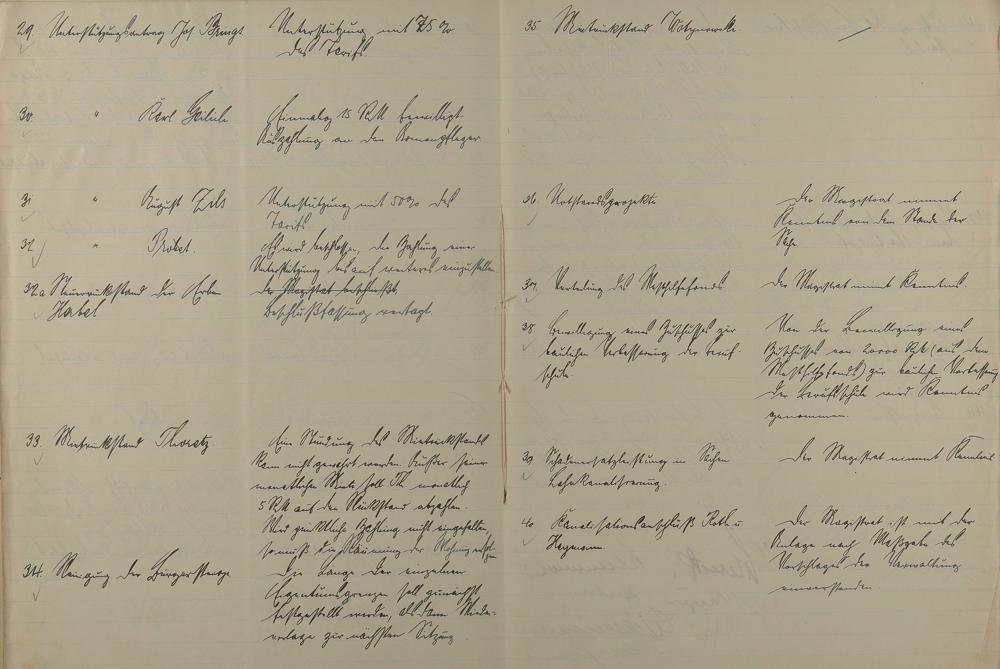 29. Unterstützungsantrag Jos. Bringt
Unterstützung mit 75 %
des Tarifs.
30 " Karl
Einmalig 15 RM bewilligt.
Auszahlung an den Armenpfleger
31 " August Zelt
Unterstützung mit 50 % des
Tarifs
32. " Pribet.
Es wird beschlossen, die Zahlung einer
Unterstützung bis auf weiteres einzustellen
32a Steuerrückstand der Erben
Habel
Der Magistrat beschließt
Beschlußfassung vertagt.
33. Mietrückstand Thoretz
Eine Stundung des Mietrückstands
kann nicht gewährt werden. Außer seiner
monatlichen Miete soll Th. monatlich
5 RM auf den Rückstand abzahlen.
Wird pünktliche Zahlung nicht eingehalten,
so muß die Räumung der Wohnung erfolgen
34. Reinigung der Bürgersteige
Die Länge der einzelnen
Eigentumsgrenzen soll zunächst
festgestellt werden, alsdann Wieder-
vorlage zur nächsten Sitzung
35 Mietrückstand
36. Notstandsprojekte
Der Magistrat nimmt
Kenntnis von dem Stande der
Sache
37. Verteilung des
Der Magistrat nimmt Kenntnis.
38. Bewilligung eines Zuschusses zur
baulichen Verbesserung der Beruf-
schule
Von der Bewilligung eines
Zuschusses von 20000 RM (aus dem
) zur baulichen Verbesserung
der Berufschule wird Kenntnis
genommen.
39. Schadensersatzleistung in Sachen
Lahnkanalisierung.
Der Magistrat nimmt Kenntnis
40. Kanalisationsanschluß Roth u
Heymann.
Der Magistrat ist mit der
Anlage nach Maßgabe des
Vorschlages der Verwaltung
einverstanden.